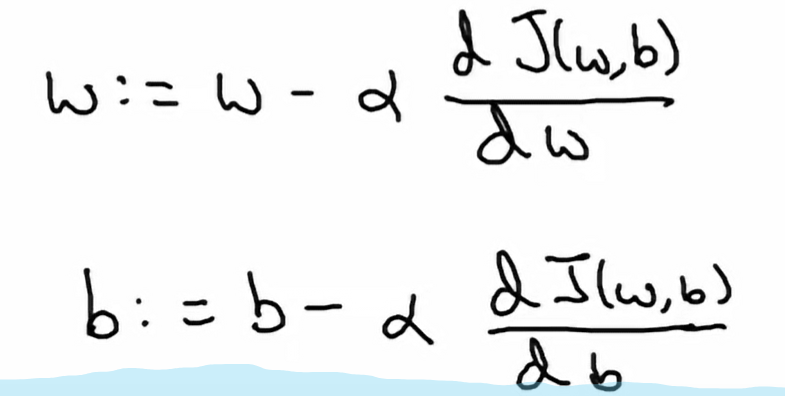 w := w - α d J(w,b) / d w
b := b - α d J(w,b) / d b